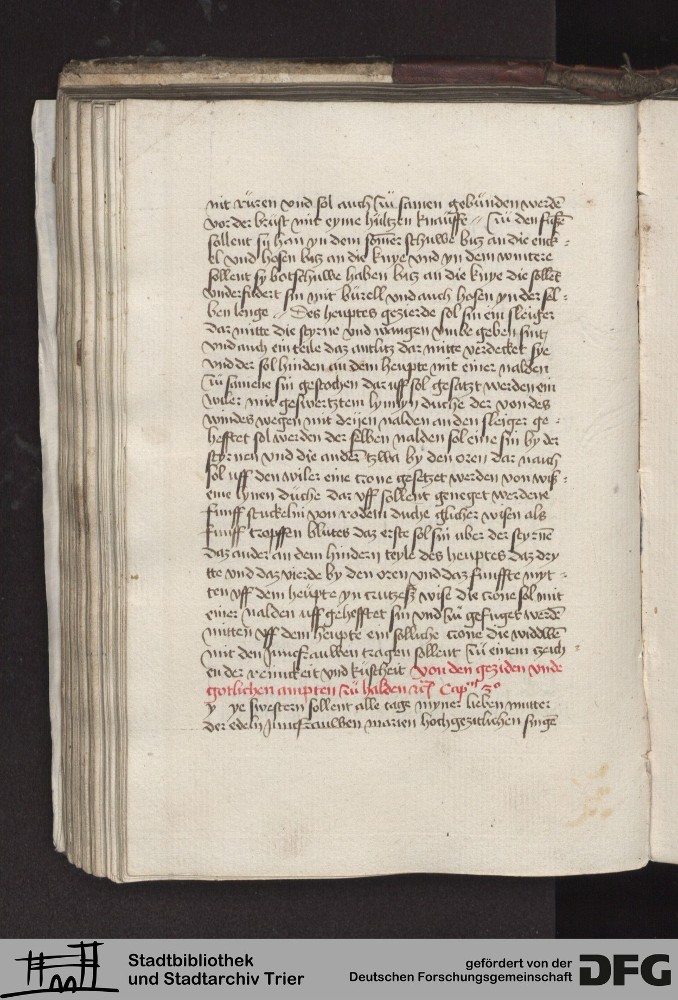 nit rüren vnd sol auch zü samen gebünden werdē
vor der brüst mit eyme hültzen knauffe // zü den füssē
sollent sÿ han yn dem sōmer schuwe bitz an die enck =
el vnd hosen bitz an die knye vnd yn dem wintere
sollent sy botschuwe haben bitz an die knye die sollēt
vnderfudert sin mit bürell vnd auch hosen yn der sel =
ben lenge // Des heuptes gezierde sol sin ein sleiger
dar mitte die styrne vnd wangen vmbe geben sint
vnd auch ein teile daz antlitz dar mitte verdecket sye
vnd der sol hinden an dem heupte mit einer nalden
zü samene sin gestochen dar uff sol gesatzt werden ein
wiler mit geswertztem lymyn düche der von des
windes wegen mit drijen nalden an den sleiger ge =
hefftet sol werden der selben nalden sol eine sin by der
styrnen vnd die andern tzwa by den oren dar nauch
sol uff den wiler eine crone gesetzet werden von wiss =
eme lynen düche dar vff sollent geneget werdene
funff stuckelin von rodem duche glicher wisen als
funff tropffen blutes daz erste sol sin uber der styrnē
daz ander an dem hindern teyle des heuptes daz dry
tte vnd daz vierde by den oren vnd daz funffte myt =
ten vff dem heüpte yn crutzesz wise die crone sol mit
einer nalden uff gehefftet sin vnd zü gefuget werdē
mitten vff dem heupte ein solliche crone die widdwē
mit den Juncfrauwen tragen sollent zü einem tzeich =
en der reinickeit vnd kuscheit Von den geziden vnde
gotlichen ampten zü halden Capm 3o
y ye swestern sollent alle tage myner lieben mutter
der edeln Juncfrauwen marien hochgezitlichen singē
Stadtbibliothek
und Stadtarchiv Trier
gefördert von der
Deutschen Forschungsgemeinschaft
DFG